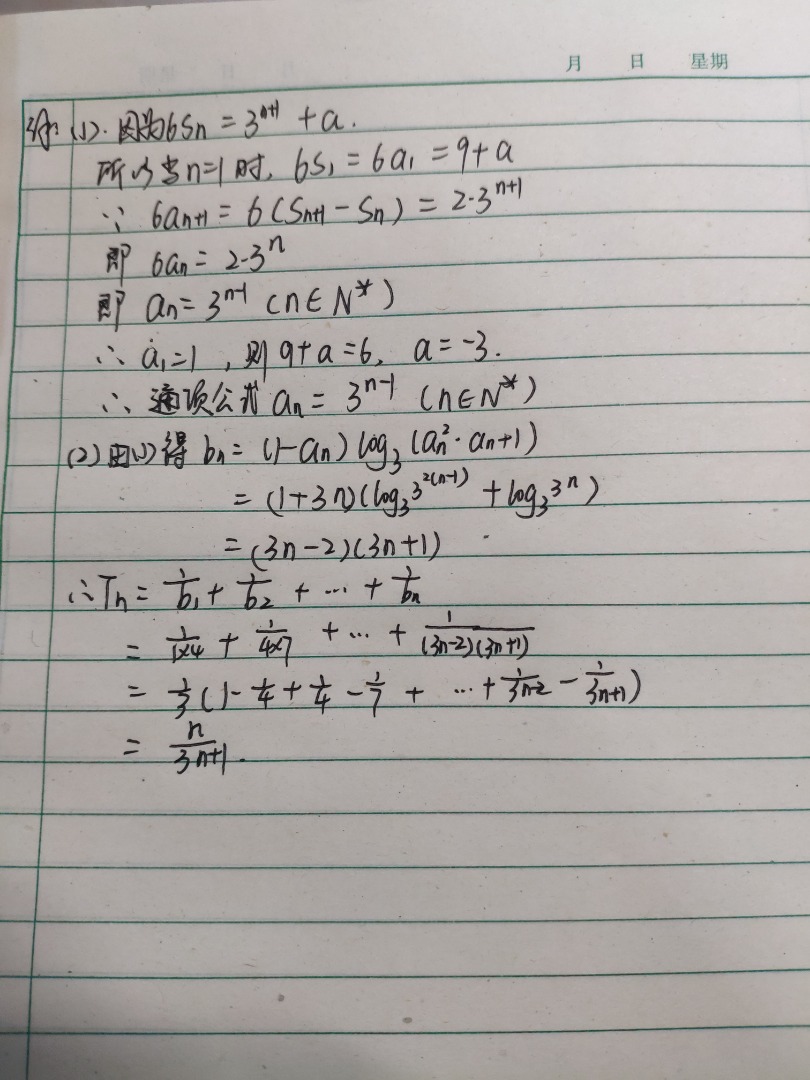 月 日 星期
解 (1). 因为6Sn = 3^{n+1} + a.
所以当n=1时, 6S₁ = 6a₁ = 9+a
∵ 6a_{n+1} = 6(S_{n+1} - S_n) = 2·3^{n+1}
即 6a_n = 2·3^n
即 a_n = 3^{n-1} (n∈N*)
∴ a₁=1, 则 9+a=6, a=-3.
∴ 通项公式 a_n = 3^{n-1} (n∈N*)
(2) 由(1)得 b_n = (1-an) log₃ (a_n²·a_{n+1})
= (1+3n)(log₃3^{2(n-1)} + log₃3^n)
= (3n-2)(3n+1)
∴ T_n = 1/b₁ + 1/b₂ + ··· + 1/b_n
= 1/(1×4) + 1/(4×7) + ··· + 1/((3n-2)(3n+1))
= 1/3 (1 - 1/4 + 1/4 - 1/7 + ··· + 1/(3n-2) - 1/(3n+1))
= n/(3n+1).